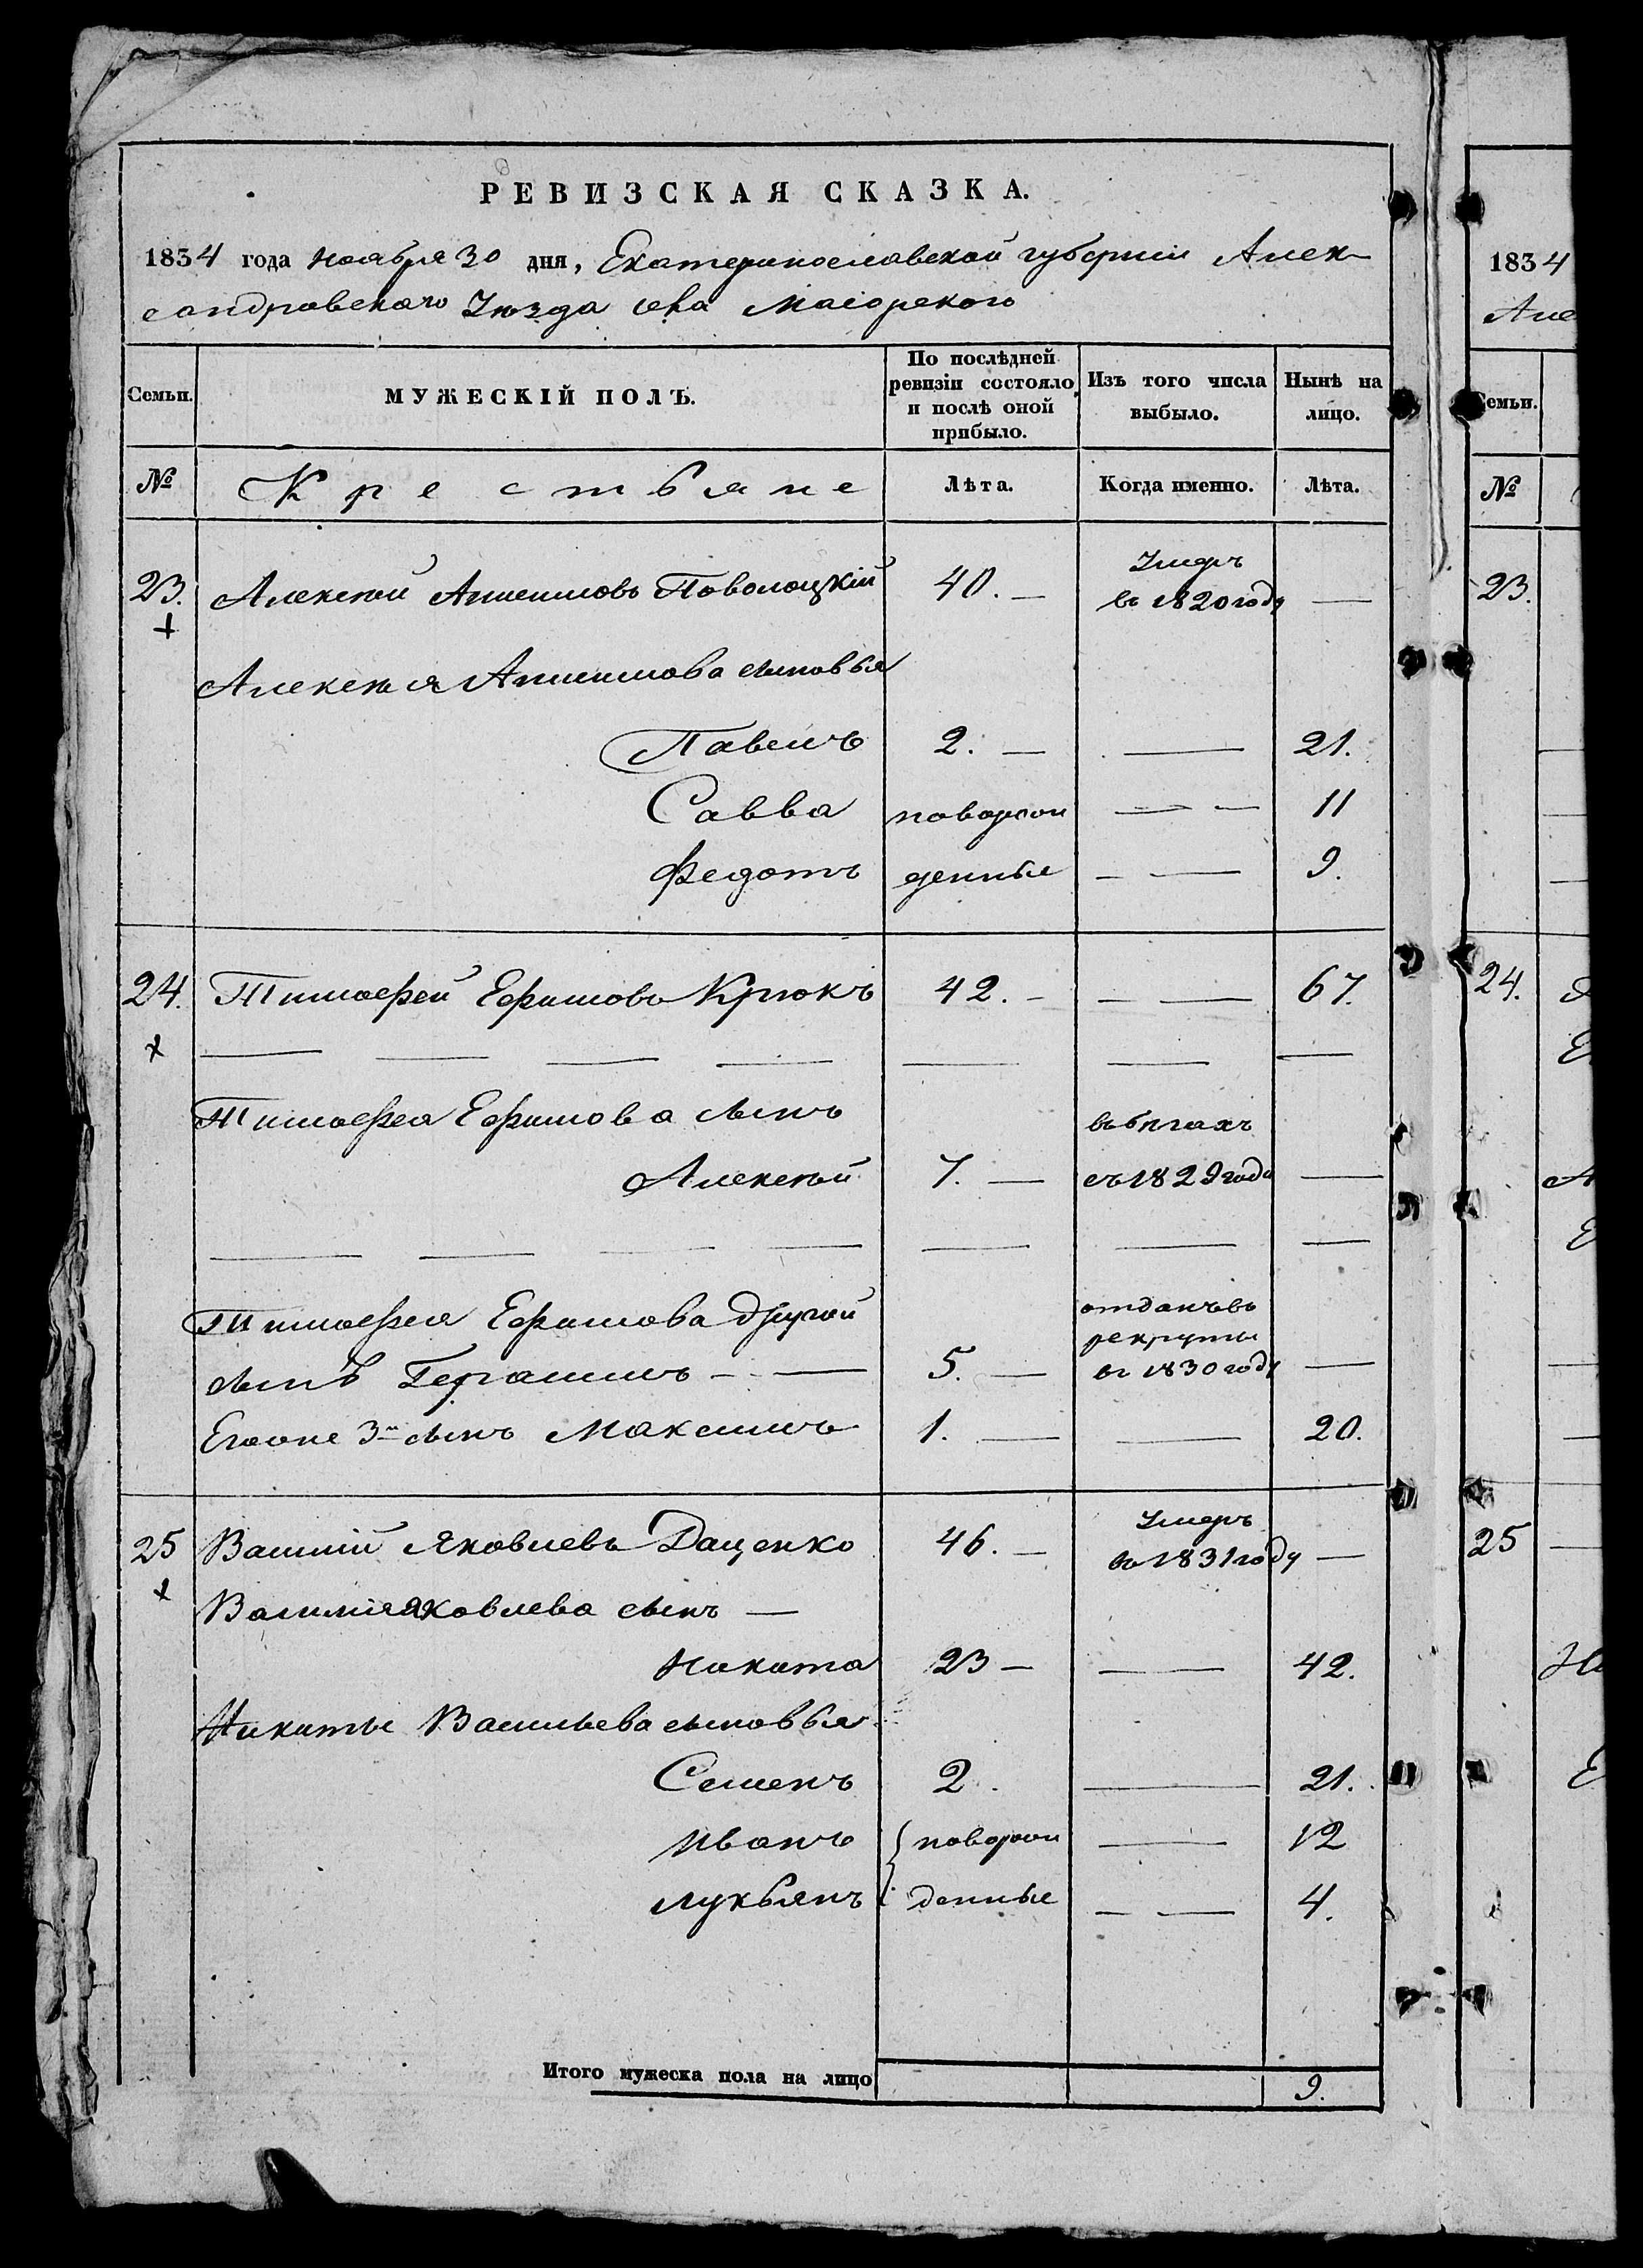 РЕВИЗСКАЯ СКАЗКА.
1834 года Ноября 30 дня, Екатеринославской губернии Алек-
сандровскаго Уѣзда села Маіорскаго
Семьи. МУЖЕСКІЙ ПОЛЪ. По послѣдней ревизіи состояло и послѣ оной прибыло. Изъ того числа выбыло. Нынѣ на лицо.
№ Крестьяне Лѣта. Когда именно. Лѣта.
23. Алексѣй Анисимовъ Поволоцкій 40. — Умеръ въ 1820 году —
Алексѣя Анисимова сыновья
Павелъ 2. — — 21.
Савва новорож — — 11
Федотъ денные — — 9.
24. Тимофей Ефимовъ Крюкъ 42. — — — 67.
Тимофея Ефимова сынъ въ бѣгахъ
Алексѣй 7. — съ 1829 года —
Тимофея Ефимова другой отданъ въ рекруты
сынъ Герасимъ — — 5. — въ 1830 году —
Егоже 3й сынъ Максимъ 1. — — 20.
25 Василій Яковлевъ Даценко 46. — Умеръ въ 1831 году —
Василія Яковлева сынъ —
Никита 23 — — — 42.
Никиты Васильева сыновья
Семенъ 2. — 21.
Иванъ новорож — 12
Лукьянъ денные — — 4.
Итого мужеска пола на лицо 9.
1834
Але
Семьи.
№
23.
24.
25